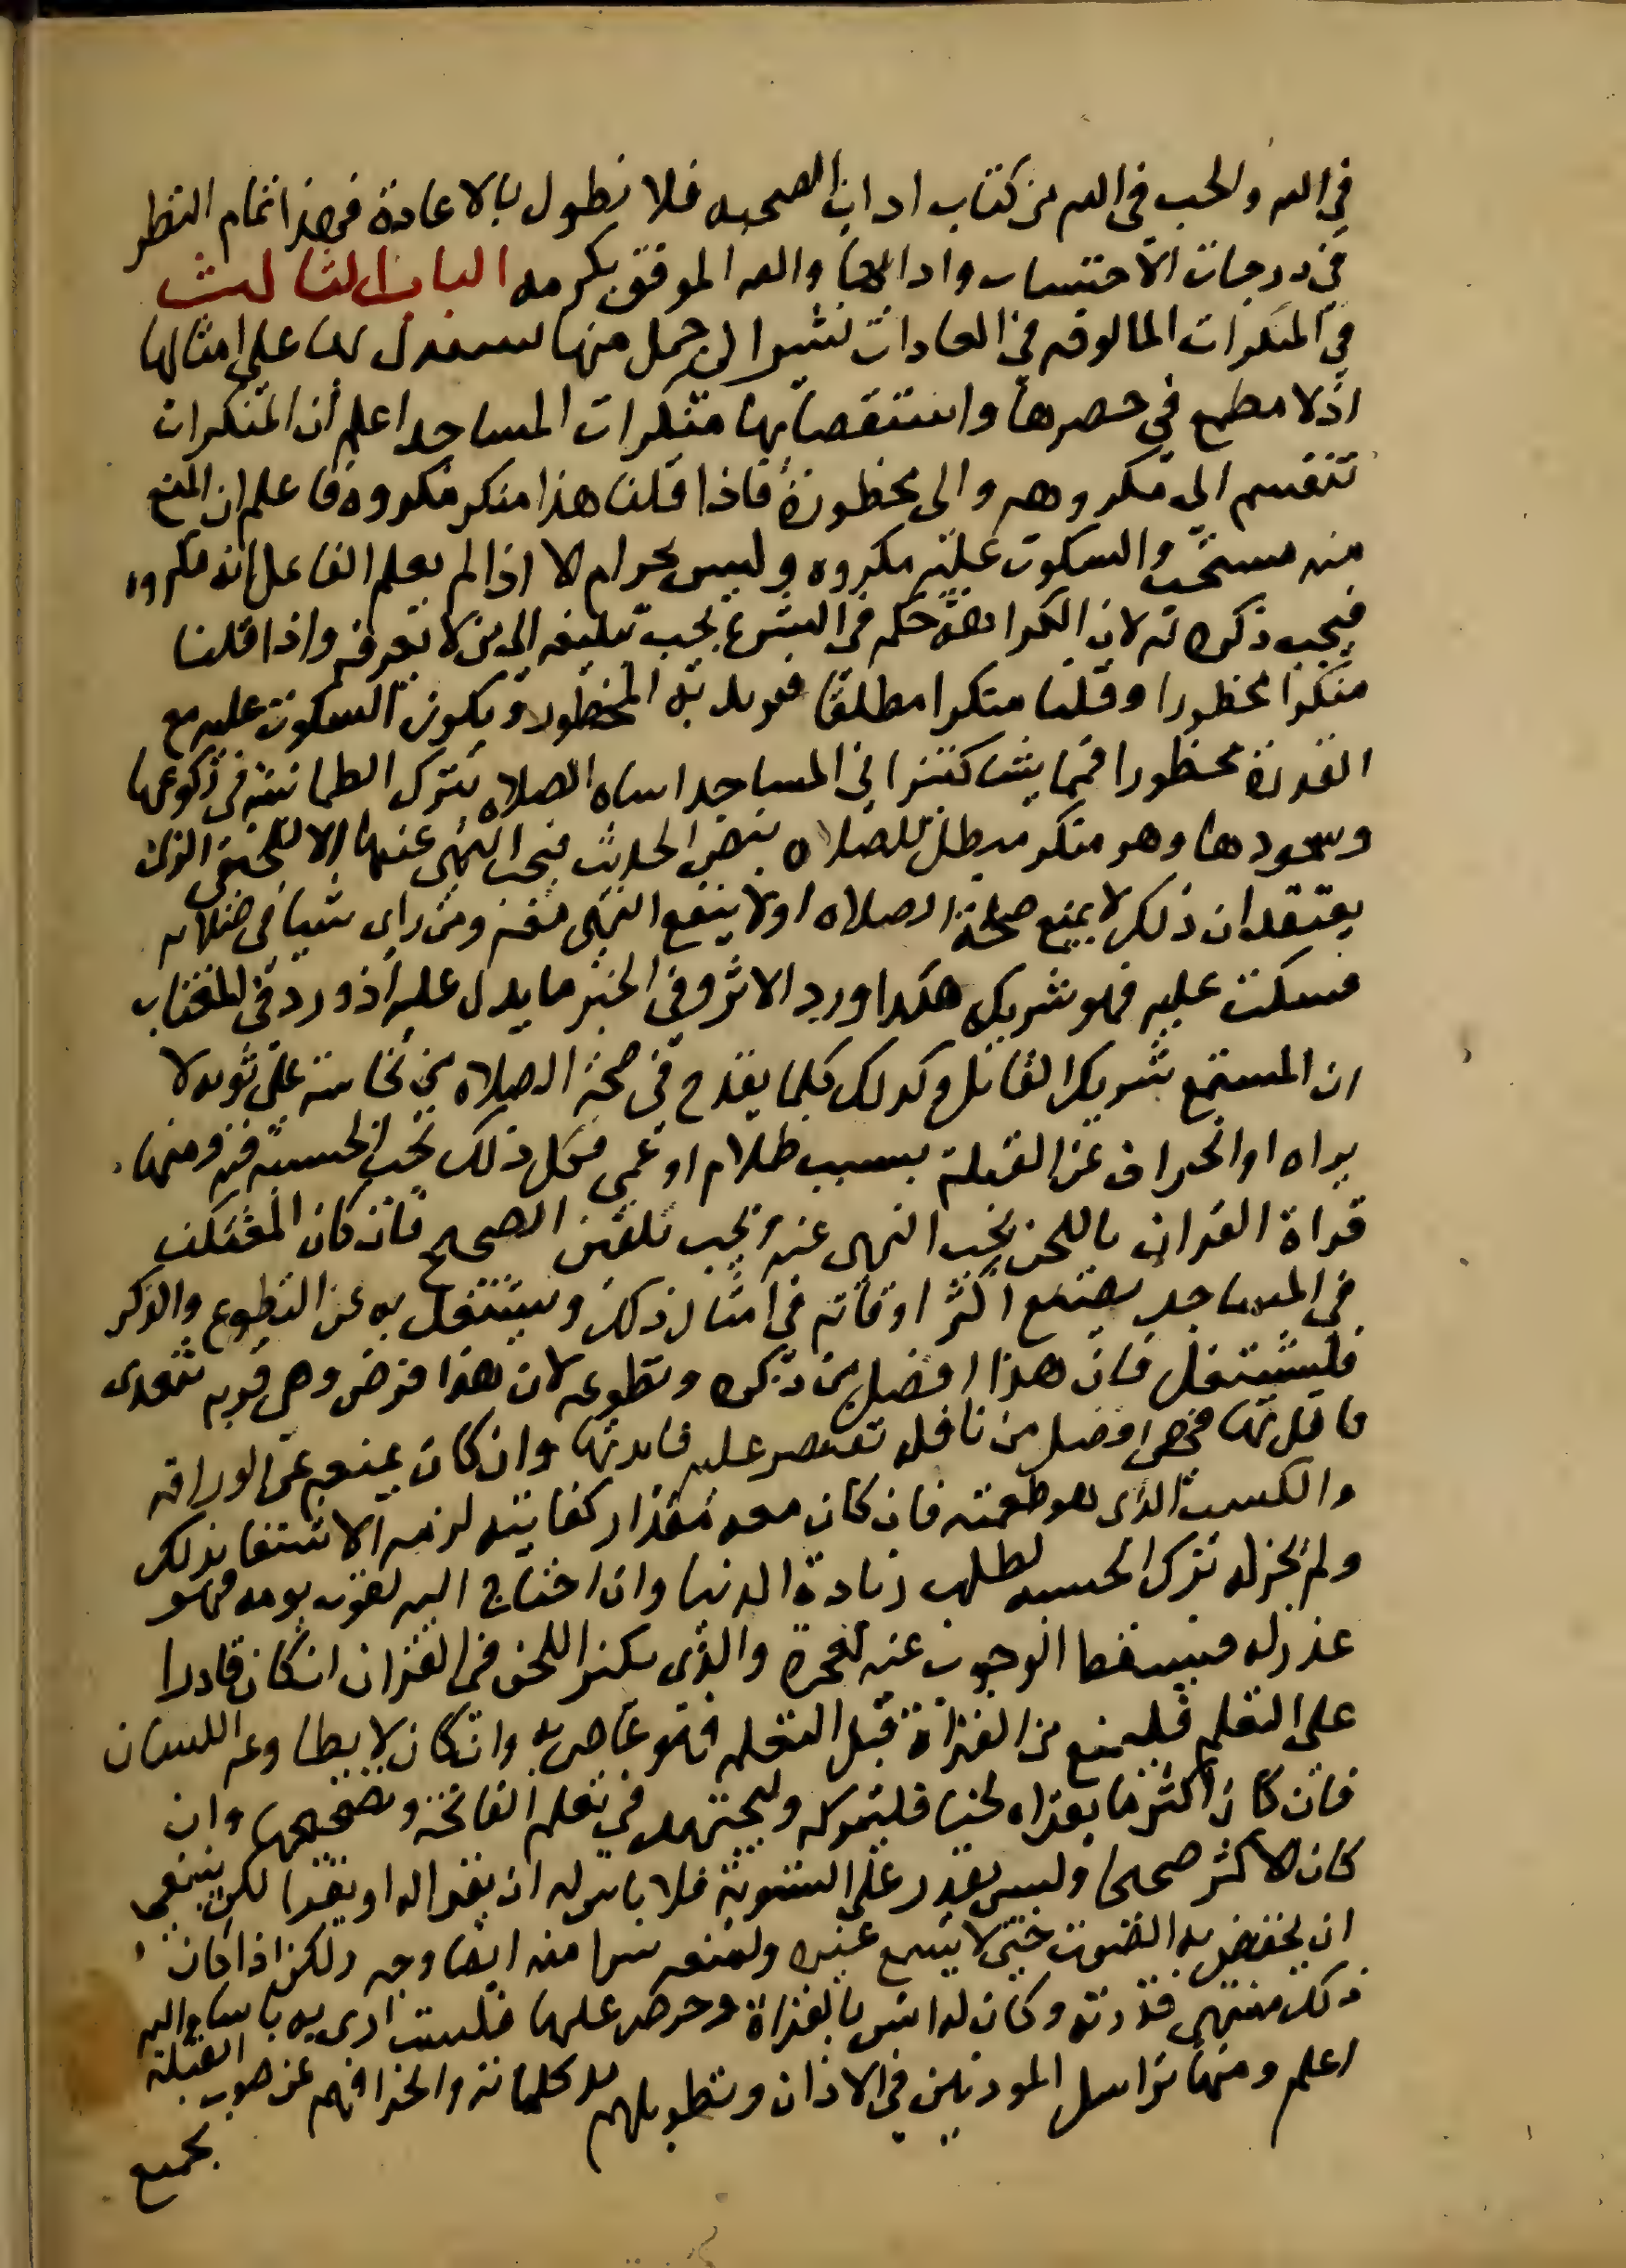 في الله والحب في الله من كتاب اداب الصحبه فلا نطول بالاعادة فهذا تمام النظر
في درجات الاحتساب وادابها والله الموفق بكرمه الباب الثالث
في المنكرات المالوفه في العادات نشير الى جمل منها ليستدل بها على امثالها
اذ لا مطمع في حصرها واستقصايها منكرات المساجد اعلم أن المنكرات
تنقسم الى مكروهه والى محظورة فاذا قلنا هذا منكر مكروه فاعلم ان المنع
منه مستحب والسكوت عليه مكروه وليس بحرام الا اذا لم يعلم الفاعل انه مكروه
فيجب ذكره له لان الكراهة حكم في الشرع يجب تبليغه الى من لا يعرفه واذا قلنا
منكرا محظورا وقلنا منكرا مطلقا فنريد به المحظور ويكون السكوت عليه مع
القدرة محظورا فمما يشاكثيرا في المساجد اساه الصلاه بترك الطمانينة في ركوعها
وسجودها وهو منكر مبطل للصلاه بنص الحديث فيجب النهي عنها الا للحنفي الذي
يعتقد ان ذلك لا يمنع صحة الصلاه اولا ينفع النهي معه ومن راى شيا في صلاته
فسكت عليه فهو شريكه هكذا ورد الاثر وفي الخبر ما يدل عليه اذ ورد في المغتاب
ان المستمع شريك القائل وكذلك كلما يقدح في صحة الصلاه من نجاسة على ثوبه لا
يراه او انحراف عن القبلة بسبب ظلام او عمى فكل ذلك تجب الحسبة فيه ومنها
قراة القران باللحن يجب النهى عنه ويجب تلقين الصحيح فان كان المعتكف
في المساجد يضيع اكثر اوقاته في امثال ذلك ويشتغل به عن التطوع والذكر
فليشتغل فان هذا افضل من ذكره وتطوعه لان هذا فرض وهي قربه تتعدى
فايدتها فهي افضل من نافلة تقتصر عليه فايدتها وان كان يمنعه عن الوراقه
والكسب الذى هو طعمته فان كان معه مقدار كفايته لزمه الاشتغا بذلك
ولم يجز له ترك الحسبه لطلب زيادة الدنيا وان احتاج اليه لقوت يومه فهو
عذر له فيسقط الوجوب عنه لعجزه والذى يكثر اللحن في القران ان كان قادرا
على التعلم فليمنع من القراة قبل التعلم فهو عاص به وان كان لا يطاوعه اللسان
فان كان اكثر ما يقراه لحنا فليتركه وليجتهد في تعلم الفاتحة وتصحيحها وان
كان الاكثر صحيحا وليس يقدر على التسوية فلا باس له ان يقرا لكن ينبغي
ان يخفض به الصوت حتى لا يسمع غيره ولمنعه سرا منه ايضا وجه ولكن اذا كان
ذلك منتهى قدرته وكان له انس بالقراة وحرص عليها فلست ارى به باسا والله
اعلم ومنها تراسل الموذنين في الاذان وتطويلهم مد كلماته وانحرافهم عن صوب القبلة
بجميع